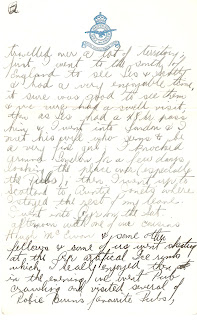 2
travelled over a lot of territory,
first I went to the south of
England to see Les &
& had a very enjoyable time,
it sure was good to see them
& we sure had a swell visit,
then as Les had a 48 hr pass
they & I went into London &
met his who seems to be
a very fine girl. I knocked
around London for a few days
looking the place over, especially
the pubs, then I went up to
Scotland to Auntie where
I stayed the rest of my leave.
I went into the Sat
afternoon with one of our cousins
Hugh & some other
fellows & some of us went skating
at the artificial Ice rink
which I really enjoyed then
in the evening we went Pub
Crawling and visited several of
Robie Burns favorite Pubs,